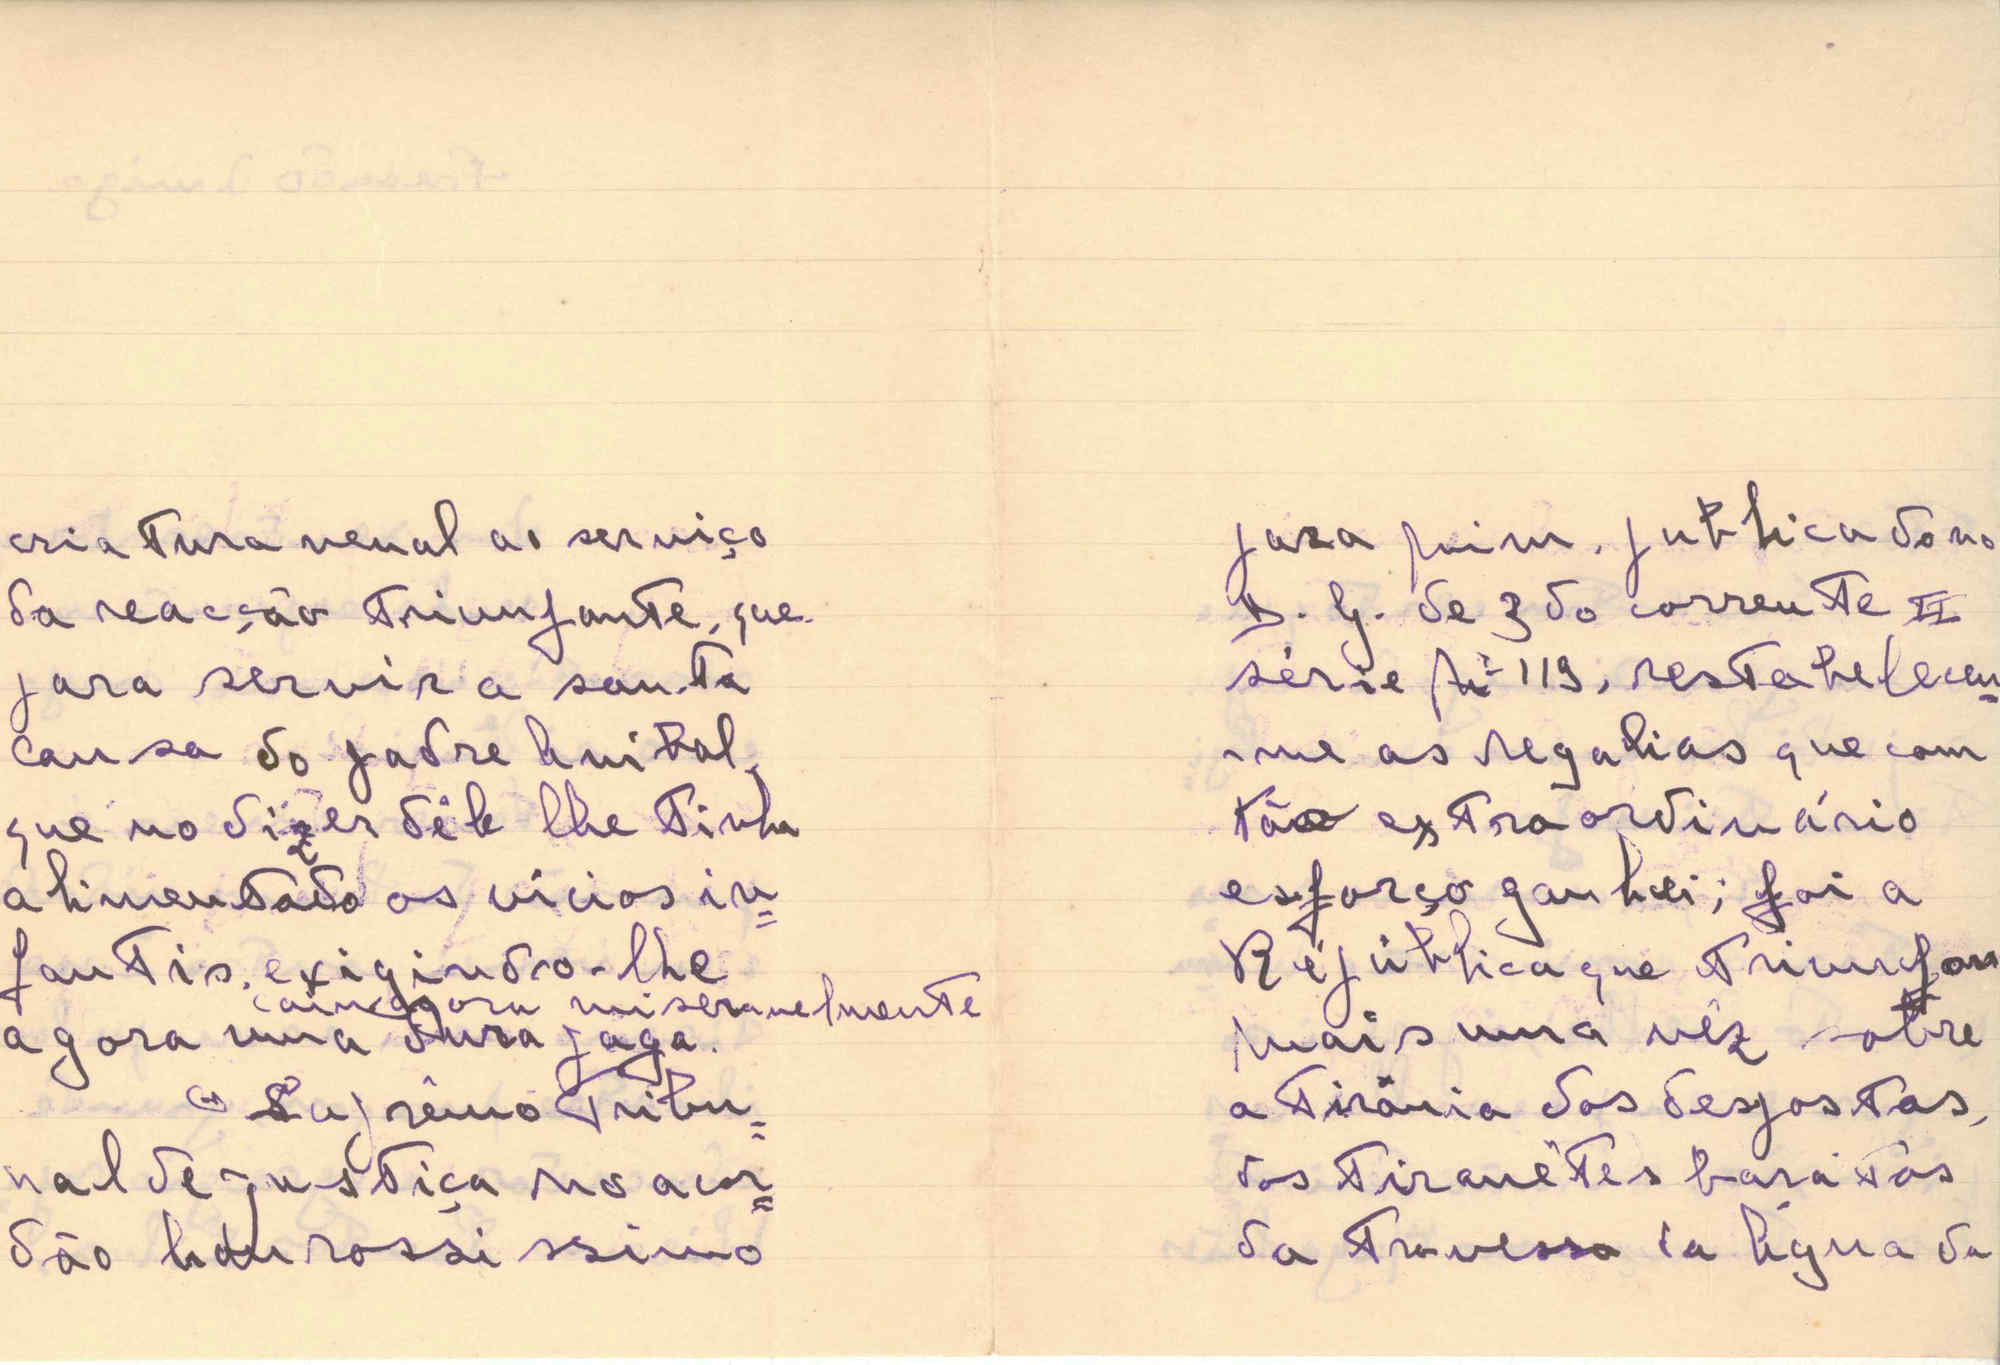 criatura venal ao serviço
da reacção triunfante, que
para servir a santa
causa do padre Anibal,
que no dizer dêle lhe tinha
alimentado os vicios in=
fantis, exigindo-lhe
cainagora miseravelmente
agora uma dura paga.
O Suprêmo Tribu=
nal de justiça no acor=
dão honrossissimo
para mim, publicado no
D. G. de 3 do corrente II
série Nº 119, restabeleceu=
-me as regalias que com
tão extraordinário
esforço ganhei; foi a
República que triunfou
mais uma vêz sobre
a tirânia dos despostas,
dos tiranêtes baratos
da travessa da Agua da